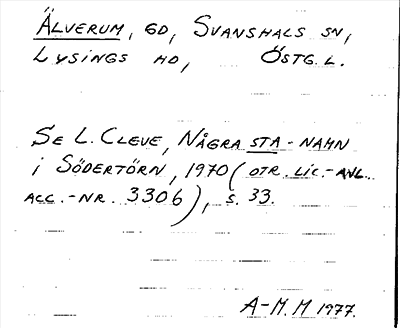 Älverum, GD, Svanshals sn,
Lysings hd, Östg. l.
Se L. Cleve, Några sta-namn
i Södertörn, 1970 (otr. lic.-avl.
acc.-nr. 3306), s. 33.
A-M. M 1977.